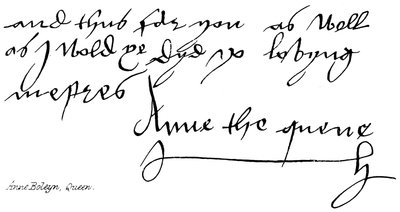 and thus far you as Well
as I Wold ye dyd yo lovyng
mestres
Anne the quene
Anne Boleyn, Queen.